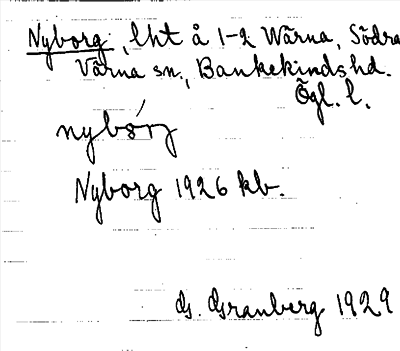 Nyborg, lht å 1-2 Wärna, Södra
Vårna sn., Bankekinds hd.
Ögl. l.
nybórj
Nyborg 1926 kb.
G. Granberg 1929